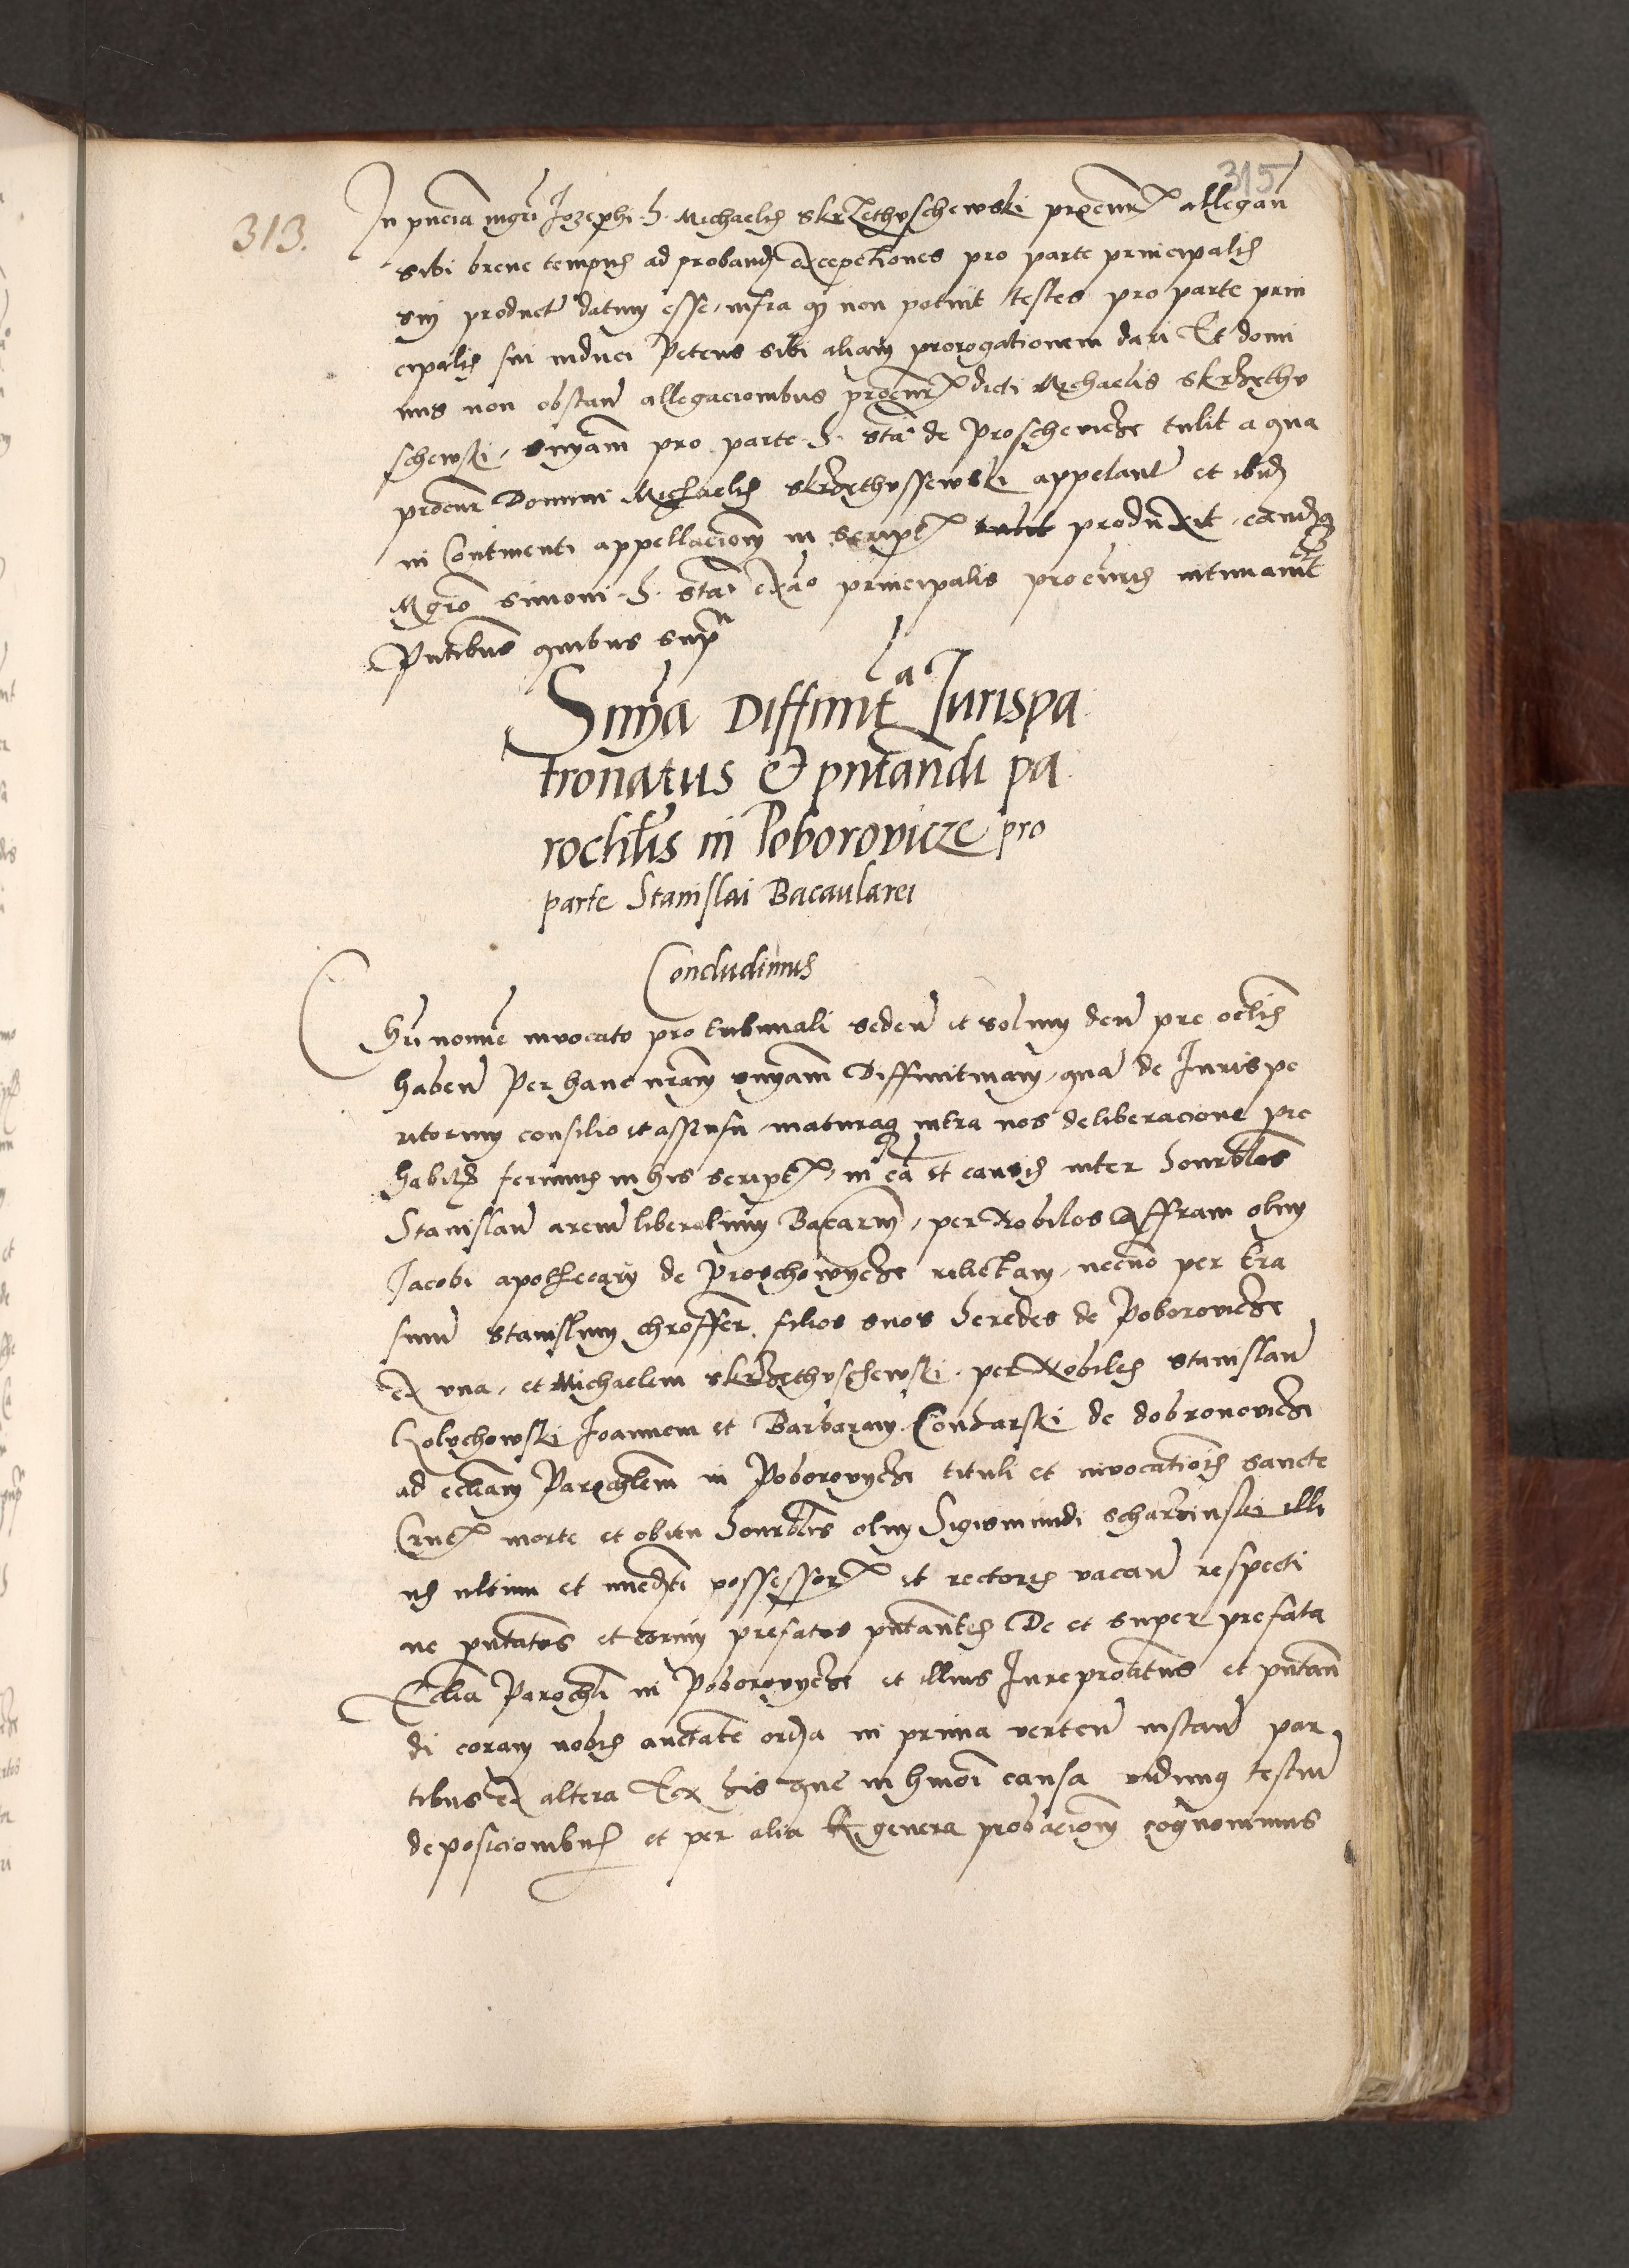 315
313.
In pncia mgri Jozephi h. Michaelis Skrzethvschewski procuris allegan
sibi breue tempus ad proband exceptiones pro parte principalis
sui product datum esse, infra q non potuit testes pro parte prin
cipalis sui induci Petens sibi aliam prorogationem dari Et domi
nus non obstan allegacionibus procuris dicti Michaelis Skrzethv
schewski, snyam pro parte h. Sta de Proschevicze tulit a qua
procur Domini Michaelis Skrzethvssewski appelant et ibid
in Continenti appellacionem in scriptis tulit produxit, eandq
Mgro Simoni h. Sta principalis procuris intimauit
Pntibus quibus supra
Snya Diffinita Jurispa
tronatus & pntandi pa
rochlis in Poborovicze pro
parte Stanislai Bacaularei
Concludimus
Chri nomine inuocato pro tribunali seden et solum deum pre oclis
haben Per hanc nram snyam Diffinitiuam, quam de Jurispe
ritorum consilio et assensu, maturaq intra nos deliberacione pre
habita ferimus in his scriptis, in ca et causis inter honorbles
Stanislau arcium liberalium Bacarium, per Nobiles Affram olim
Jacobi apothecarii de Proschowycze relictam, necno per Era
smum Stanislaum Chroffer, filios suos heredes de Poborovicze
ex vna, et Michaelem Skrzethvschewski, per Nobiles Stanislau
Golychowski Joannem et Barbaram Condarski de Dobronovicze
ad ecclam Parochlem in Poborovycze tituli et inuocationis sancte
Crucis morte et obitu honorblis olim Sigismundi Scharbinski illi
us vltimi et immedti possessoris et rectoris vacan respecti
ue pntatos et eorum prefatos pntantes De et super prefata
Ecclia Parochli in Poborovycze et illius Jurepronatus et pntan
di coram nobis auctate orda in prima verten instan par
tibus ex altera Ex his que in hmoi causa vidimus testium
deposicionibus et per alia genera probacionem cognouimus